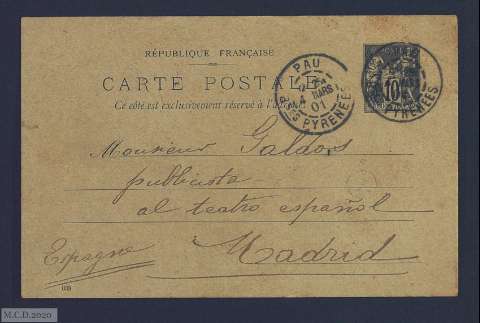 RÉPUBLIQUE FRANÇAISE
CARTE POSTALE
Ce côté est exclusivement réservé à l'adresse
PAU
4 MARS
01
BSES PYRENEES
10
PYRENEES
Monsieur Galdós
publicista
al teatro español
Madrid
Espagne
M.C.D.2020